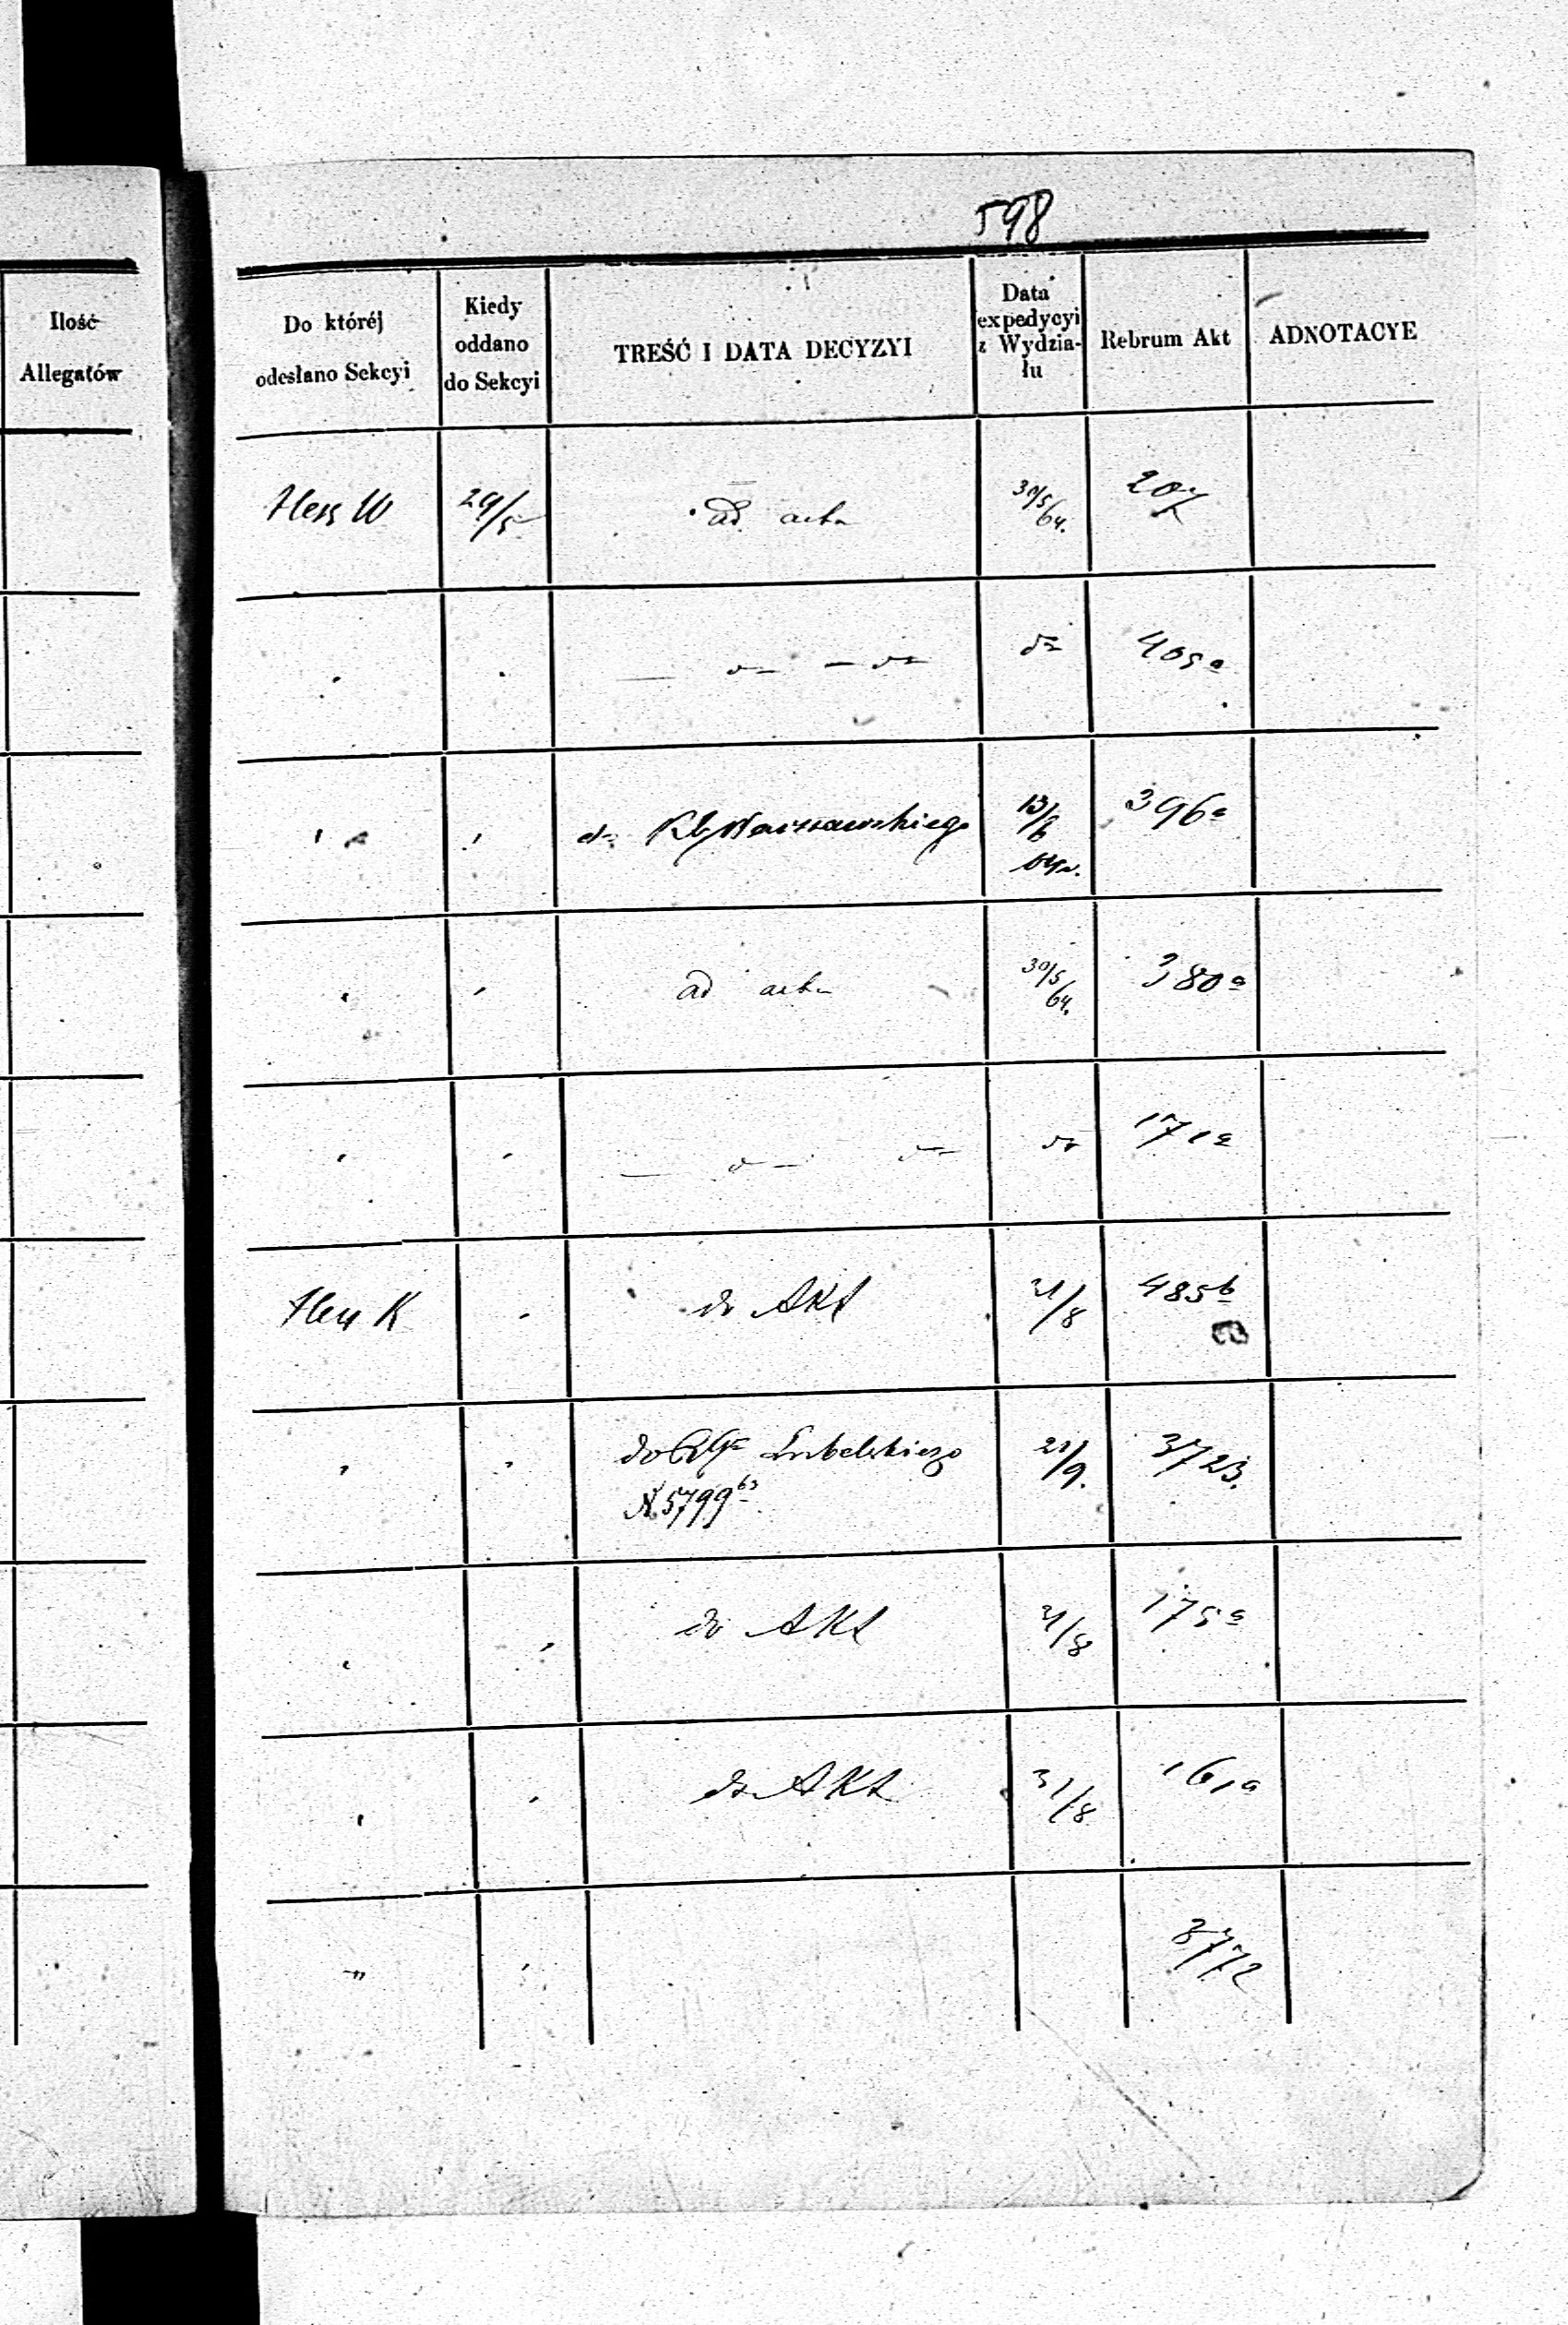 598
Ilość
Allegatów
Do któréj
odesłano Sekcyi
Kiedy
oddano
do Sekcyi
TREŚĆ I DATA DECYZYI
Data
expedycyi
z Wydzia-
łu
Rebrum Akt
ADNOTACYE
29/5 ad acta 30/5 64. 207
405a
Warszawskiego 13/6 64 396a
ad acta 30/5 64. 380a
171a
K do Akt 31/8 485b
do Lubelskiego 21/9. 3723.
N. 5799 63
do Akt 31/8 175a
do Akt 31/8 161a
3772